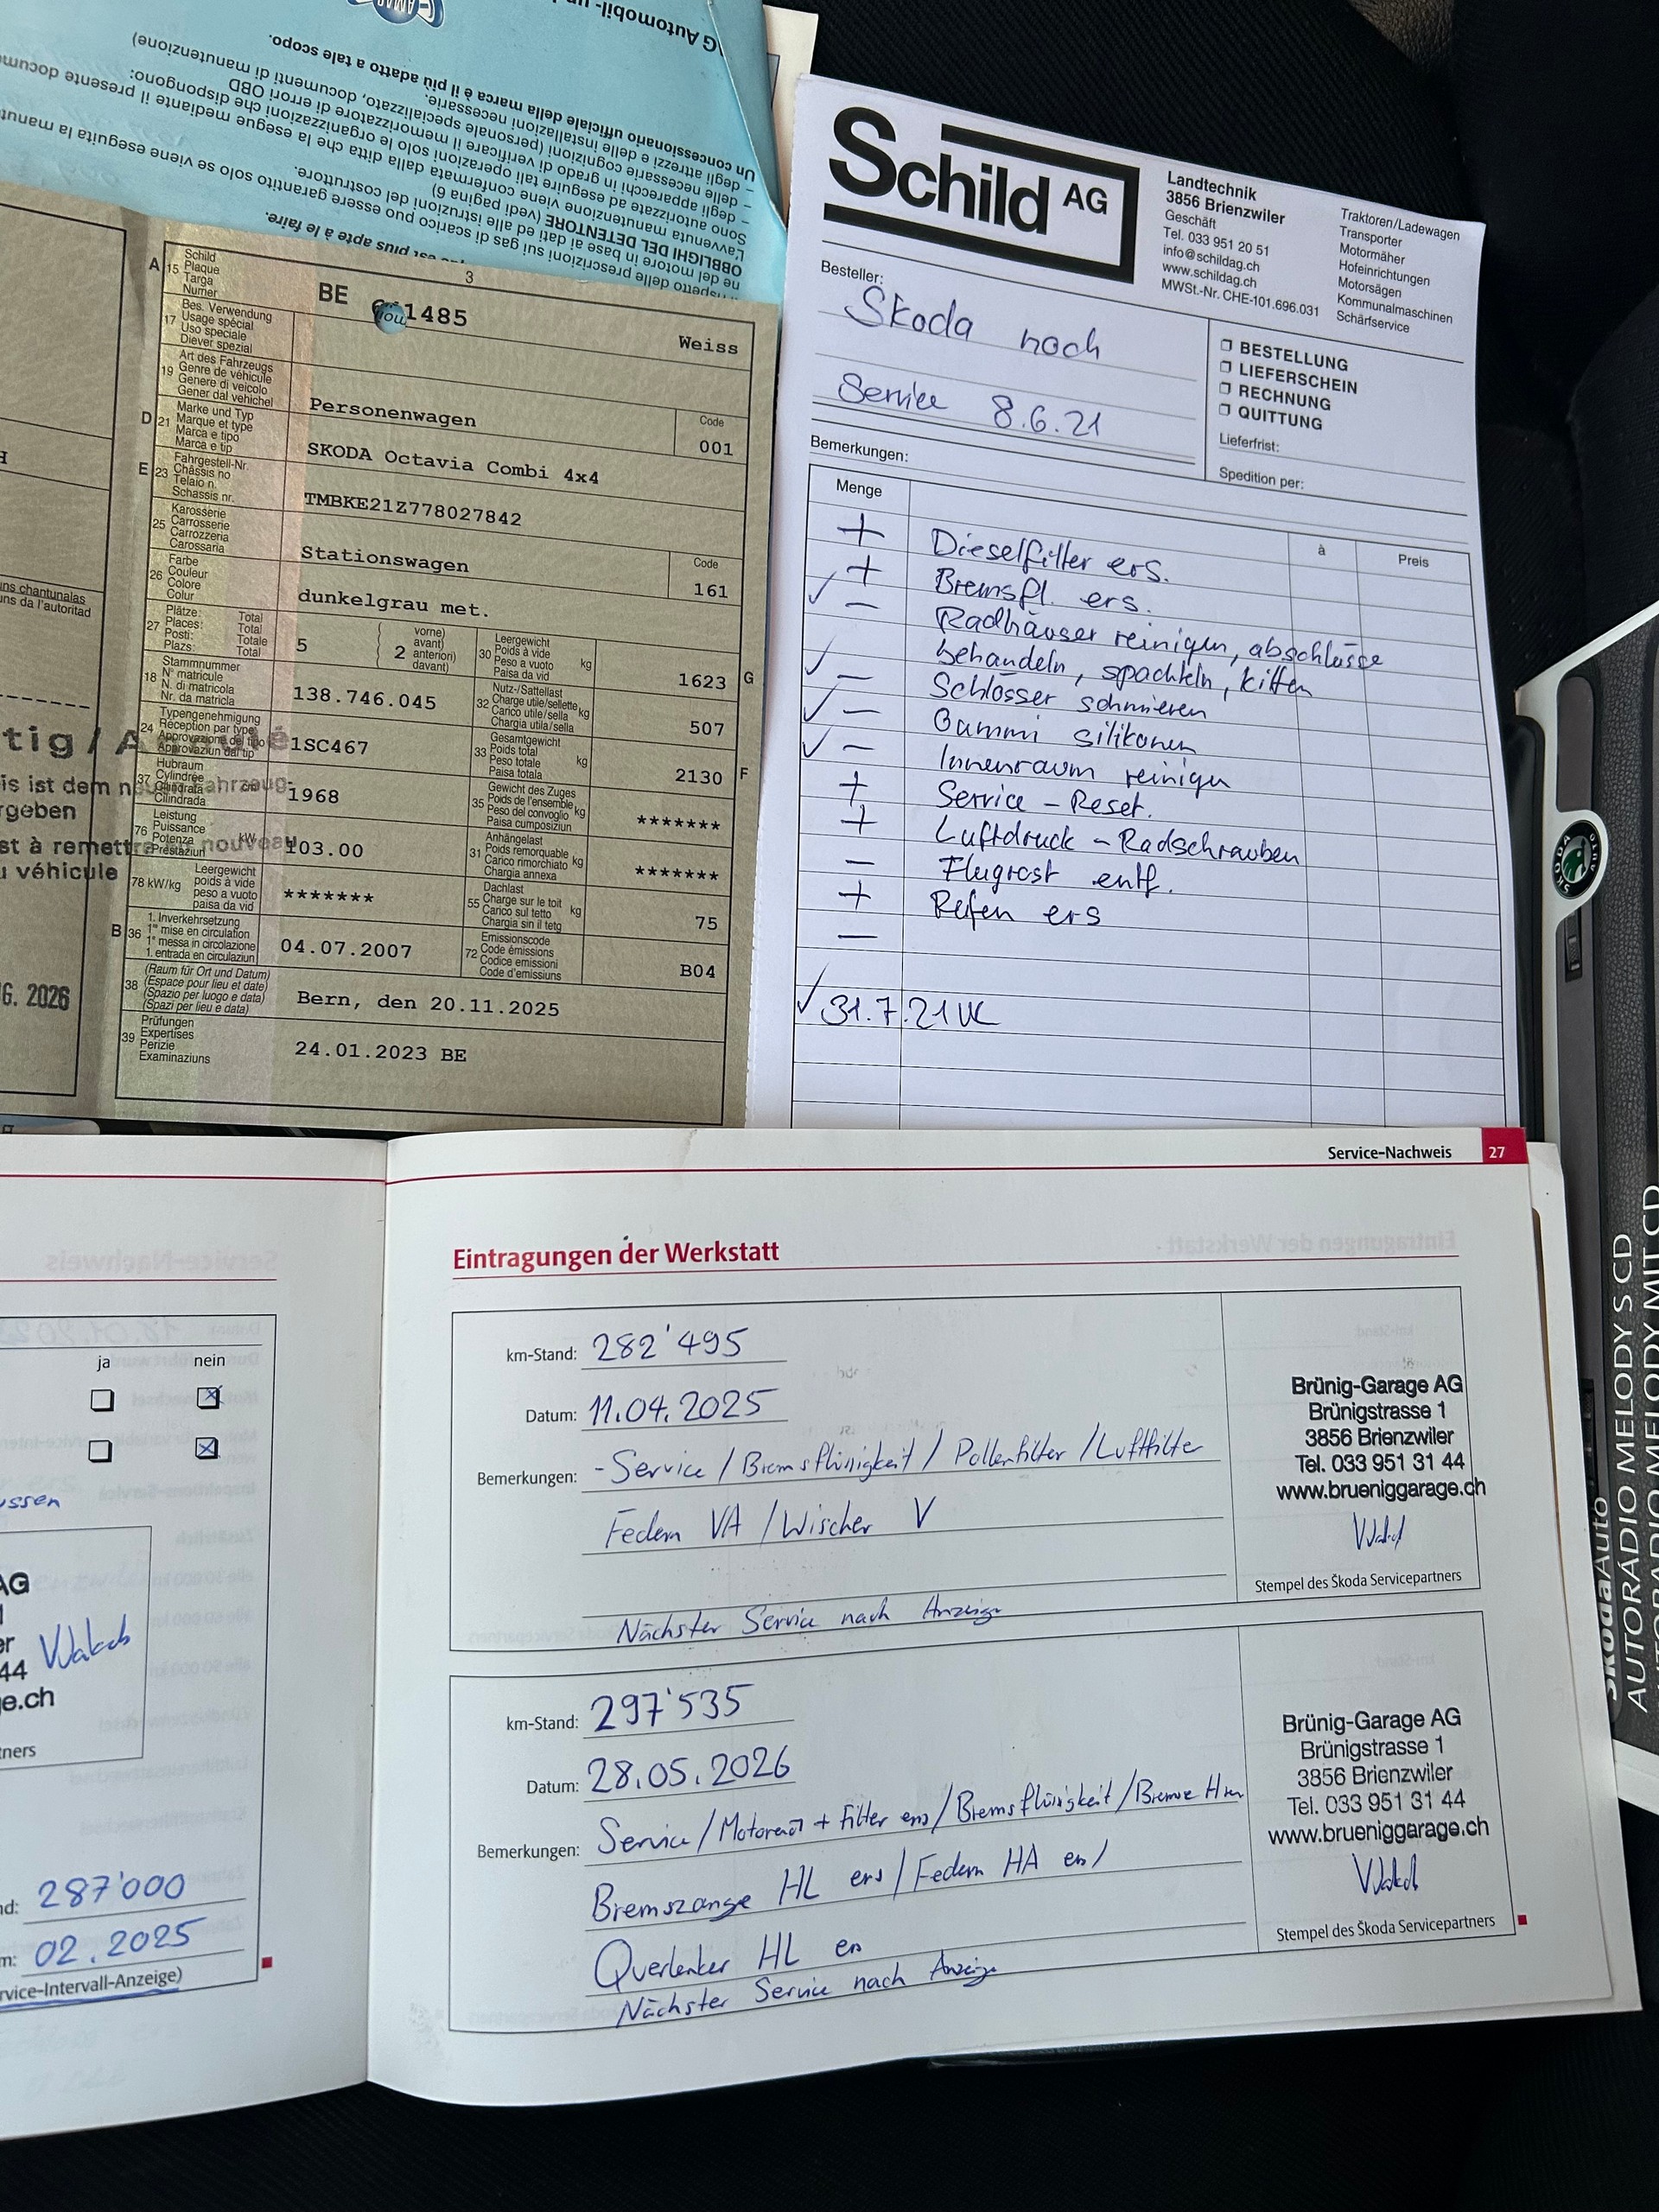 G Automobil-
Un concessionario ufficiale della marca è il più adatto a tale scopo.
– degli attrezzi e delle installazioni necessarie.
– delle necessarie cognizioni (personale specializzato, documenti di manutenzione)
– degli apparecchi in grado di verificare il memorizzatore di errori OBD
Sono autorizzate ad eseguire tali operazioni solo le organizzazioni che dispongono:
L'avvenuta manutenzione viene confermata dalla ditta che la esegue mediante il presente docume
OBBLIGHI DEL DETENTORE (vedi pagina 6)
ne del motore in base ai dati ed alle istruzioni del costruttore.
rispetto delle prescrizioni sui gas di scarico può essere garantito solo se viene eseguita la manut
est plus apte à le faire.
3
A 15 Schild Plaque Targa Numer
BE 1485
Weiss
17 Bes. Verwendung Usage spécial Uso speciale Diever spezial
19 Art des Fahrzeugs Genre de véhicule Genere di veicolo Gener dal vehichel
Personenwagen
Code
001
D 21 Marke und Typ Marque et type Marca e tipo Marca e tip
SKODA Octavia Combi 4x4
E 23 Fahrgestell-Nr. Châssis no Telaio n. Schassis nr.
TMBKE21Z778027842
25 Karosserie Carrosserie Carrozzeria Carossaria
Stationswagen
Code
161
26 Farbe Couleur Colore Colur
dunkelgrau met.
27 Plätze: Places: Posti: Plazs: Total Total Totale Total
5
2
vorne) avant) anteriori) davant)
30 Leergewicht Poids à vide Peso a vuoto Paisa da vid kg
1623 G
18 Stammnummer N° matricule N. di matricola Nr. da matricla
138.746.045
32 Nutz-/Sattellast Charge utile/sellette Carico utile/sella Chargia utila/sella kg
507
24 Typengenehmigung Réception par type Approvazione del tipo Approvaziun dal tip
1SC467
33 Gesamtgewicht Poids total Peso totale Paisa totala kg
2130 F
37 Hubraum Cylindrée Cilindrata Cilindrada cm³
1968
35 Gewicht des Zuges Poids de l'ensemble Peso del convoglio Paisa cumposiziun kg
*******
76 Leistung Puissance Potenza Prestaziun kW
103.00
31 Anhängelast Poids remorquable Carico rimorchiato Chargia annexa kg
*******
78 kW/kg Leergewicht poids à vide peso a vuoto paisa da vid
*******
55 Dachlast Charge sur le toit Carico sul tetto Chargia sin il tetg kg
75
B 36 1. Inverkehrsetzung 1re mise en circulation 1a messa in circolazione 1. entrada en circulaziun
04.07.2007
72 Emissionscode Code émissions Codice emissioni Code d'emissiuns
B04
38 (Raum für Ort und Datum) (Espace pour lieu et date) (Spazio per luogo e data) (Spazi per lieu e data)
Bern, den 20.11.2025
39 Prüfungen Expertises Perizie Examinaziuns
24.01.2023 BE
ns chantunalas
ns da l'autoritad
tig / A
is ist dem n
rgeben
st à remettre nouveau
véhicule
G. 2026
Schild AG
Landtechnik
3856 Brienzwiler
Geschäft
Tel. 033 951 20 51
info@schildag.ch
www.schildag.ch
MWSt.-Nr. CHE-101.696.031
Traktoren/Ladewagen
Transporter
Motormäher
Hofeinrichtungen
Motorsägen
Kommunalmaschinen
Schärfservice
Besteller:
Skoda noch
Service 8.6.21
BESTELLUNG
LIEFERSCHEIN
RECHNUNG
QUITTUNG
Lieferfrist:
Spedition per:
Bemerkungen:
Menge
à
Preis
+ Dieselfilter ers.
+ Bremsfl. ers.
✓ – Radhäuser reinigen, abschlüsse
behandeln, spachteln, kitten
✓ – Schlösser schmieren
✓ – Gummi silikonen
✓ – Innenraum reinigen
+ Service – Reset.
+ Luftdruck – Radschrauben
– Flugrost entf.
+ Reifen ers
–
✓ 31.7.21 VK
Service–Nachweis 27
Eintragungen der Werkstatt
km-Stand: 282'495
Datum: 11.04.2025
Bemerkungen: - Service / Bremsflüssigkeit / Pollenfilter / Luftfilter
Federn VA / Wischer V
Nächster Service nach Anzeige
Brünig-Garage AG
Brünigstrasse 1
3856 Brienzwiler
Tel. 033 951 31 44
www.brueniggarage.ch
Stempel des Škoda Servicepartners
km-Stand: 297'535
Datum: 28.05.2026
Bemerkungen: Service / Motorenöl + Filter ers / Bremsflüssigkeit / Bremse
Bremszange HL ers / Federn HA ers /
Querlenker HL ers
Nächster Service nach Anzeige
Brünig-Garage AG
Brünigstrasse 1
3856 Brienzwiler
Tel. 033 951 31 44
www.brueniggarage.ch
Stempel des Škoda Servicepartners
ja nein
ssen
AG
er
44
e.ch
tners
nd: 287'000
m: 02.2025
rvice-Intervall-Anzeige)
SKODA AUTO
ŠkodaAuto
AUTORÁDIO MELODY S CD
AUTORADIO MELODY MIT CD